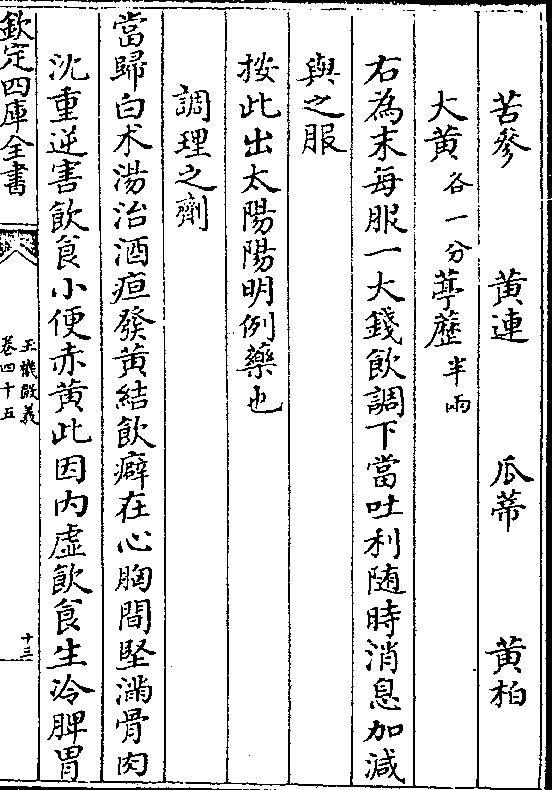 苦參　黃連　瓜蒂　黃柏
大黃各一分葶藶半兩
右為末每服一大錢飲調下當吐利随時消息加減
與之服
按此出太陽陽明例藥也
調理之劑
當歸白朮湯治酒疸發黃結飲癖在心胸間堅滿骨肉
沈重逆害飲食小便赤黃此因内虛飲食生冷脾胃
欽定四庫全書
玉機微義
卷四十五
十三